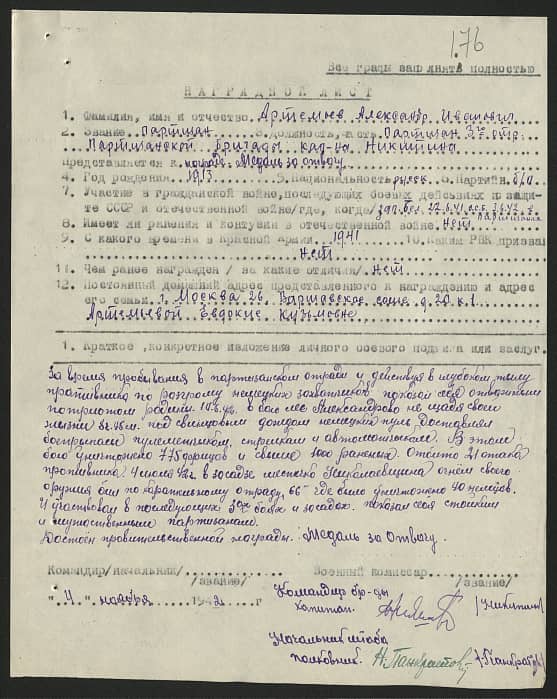 176
Все графы заполнять полностью
НАГРАДНОЙ ЛИСТ
1. Фамилия, имя и отчество Артемьев Александр Иванович
2. Звание партизан 3. Должность, часть Партизан 3го отр.
Партизанской бригады кап-на Никитина
Представляется к награде Медаль за отвагу
4. Год рождения 1913 5. Национальность русск 6. Партийн. б/п
7. Участие в гражданской войне, последующих боевых действиях по защи-
те СССР и отечественной войне/где, когда/
8. Имеет ли ранения и контузии в отечественной войне. Нет
9. С какого времени в Красной Армии 1941 10. Каким РВК призван
Нет
11. Чем ранее награжден / за какие отличия/ Нет
12. Постоянный домашний адрес представленного к награждению и адрес
его семьи. г. Москва 26 Варшавское шоссе д. 20 к. 1
Артемьевой Евдокие Кузьмовне
1. Краткое, конкретное изложение личного боевого подвига или заслуг.
За время пребывания в партизанском отряде и действуя в глубоком тылу
противника по разгрому немецких захватчиков показал себя отважным
патриотом родины. в бою лес Александрово не щадя своей
жизни под свинцовым дождем немецких пуль доставлял
боеприпасы пулеметчикам, стрелкам и автоматчикам. В этом
бою уничтожено 775 фрицов и свыше 1000 раненых. Отбито 21 атака
противника. 4 июля 42г. в засаде местечко Николаевщина огнем своего
оружия бил по карательному отряду где было уничтожено 40 немцев.
И участвовал в последующих боях и засадах. показал себя стойким
и мужественным партизаном.
Достоен правительственной награды. Медаль за Отвагу.
Командир/начальник/ Военный комиссар
/звание/ /звание/
"4" ноября 1942 г
Командир бр-ды
капитан. /Никитин/
Начальник штаба
полковник. Н. Панкратов /Панкратов/